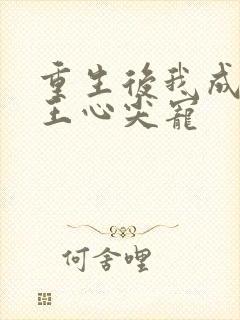 重生後我成
王心尖寵
何舍哩